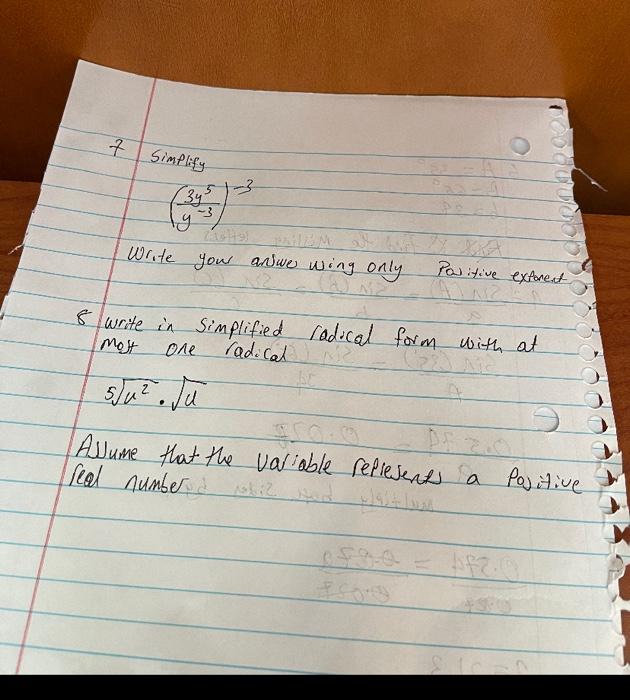 7 Simplify
(3y^5 / y^-3)^-3
Write your answer using only Positive exponent
8 write in simplified radical form with at
most one radical
5√u² · √u
Assume that the variable represents a Positive
real number